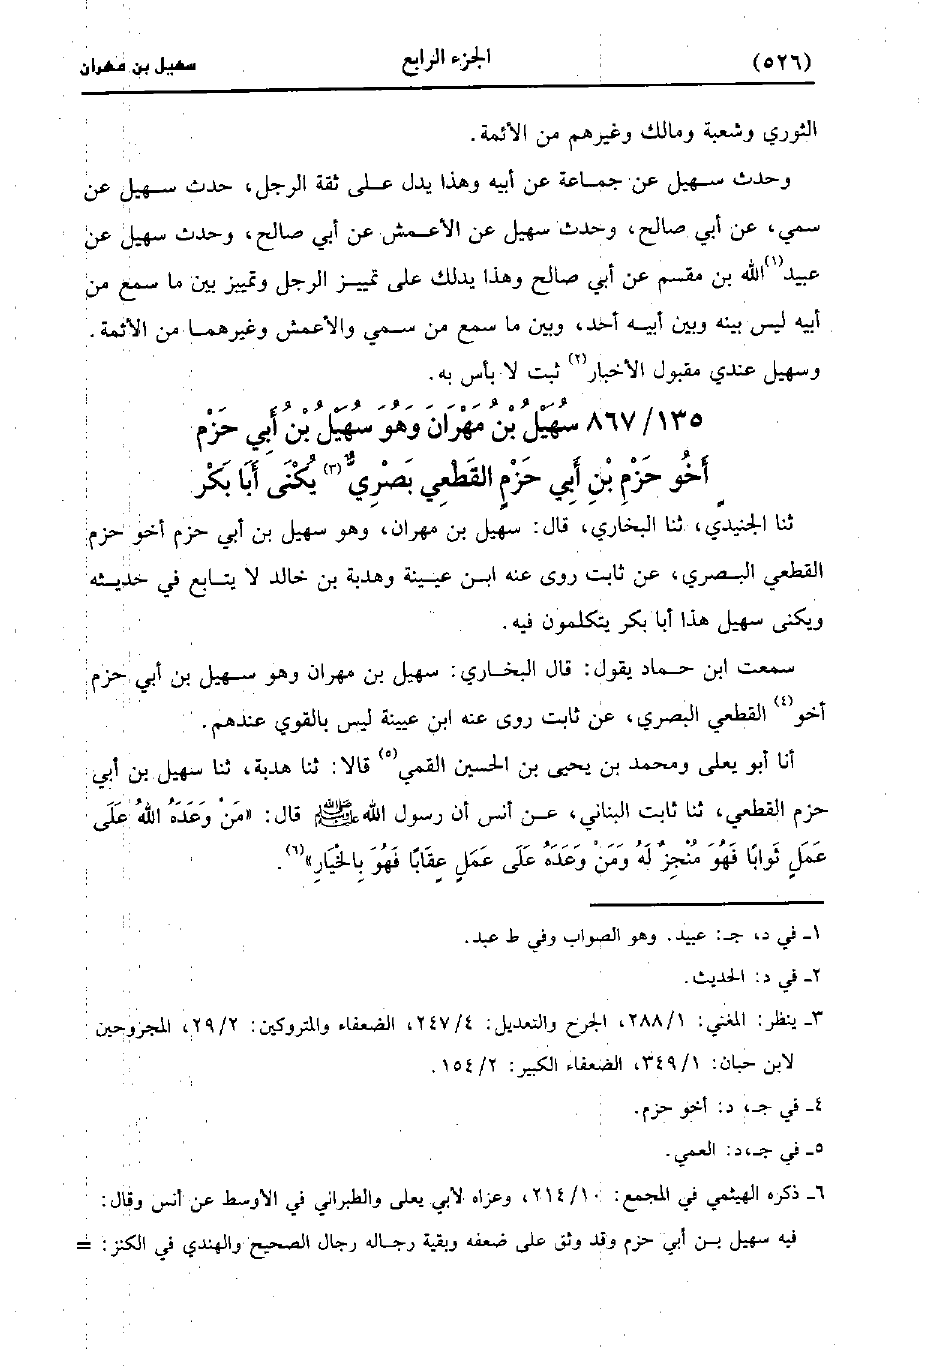 (٥٢٦) الجزء الرابع سهيل بن مهران
الثوري وشعبة ومالك وغيرهم من الأئمة.
وحدث سهيل عن جماعة عن أبيه وهذا يدل على ثقة الرجل، حدث سهيل عن
سمي، عن أبي صالح، وحدث سهيل عن الأعمش عن أبي صالح، وحدث سهيل عن
عبيد(١)الله بن مقسم عن أبي صالح وهذا يدلك على تمييز الرجل وتمييز بين ما سمع من
أبيه ليس بينه وبين أبيه أحد، وبين ما سمع من سمي والأعمش وغيرهما من الأئمة.
وسهيل عندي مقبول الأخبار(٢) ثبت لا بأس به.
٨٦٧/١٣٥ سُهَيْلُ بْنُ مِهْرَانَ وَهُوَ سُهَيْلُ بْنُ أَبِي حَزْمٍ
أَخُو حَزْمِ بْنِ أَبِي حَزْمٍ القَطْعِي بَصْرِيٌّ(٣) يُكْنَى أَبَا بَكْرٍ
ثنا الجنيدي، ثنا البخاري، قال: سهيل بن مهران، وهو سهيل بن أبي حزم أخو حزم
القطعي البصري، عن ثابت روى عنه ابن عيينة وهدبة بن خالد لا يتابع في حديثه
ويكنى سهيل هذا أبا بكر يتكلمون فيه.
سمعت ابن حماد يقول: قال البخاري: سهيل بن مهران وهو سهيل بن أبي حزم
أخو(٤) القطعي البصري، عن ثابت روى عنه ابن عيينة ليس بالقوي عندهم.
أنا أبو يعلى ومحمد بن يحيى بن الحسين القمي(٥) قالا: ثنا هدبة، ثنا سهيل بن أبي
حزم القطعي، ثنا ثابت البناني، عن أنس أن رسول الله ﷺ قال: «مَنْ وَعَدَهُ اللهُ عَلَى
عَمَلٍ ثَوابًا فَهُوَ مُنْجِزٌ لَهُ وَمَنْ وَعَدَهُ عَلَى عَمَلٍ عِقَابًا فَهُوَ بِالخِيَارِ»(٦).
١ـ في د، جـ: عبيد. وهو الصواب وفي ط عبد.
٢ـ في د: الحديث.
٣ـ ينظر: المغني: ٢٨٨/١، الجرح والتعديل: ٢٤٧/٤، الضعفاء والمتروكين: ٢٩/٢، المجروحين
لابن حبان: ٣٤٩/١، الضعفاء الكبير: ١٥٤/٢.
٤ـ في جـ، د: أخو حزم.
٥ـ في جـ،د: العمي.
٦ـ ذكره الهيثمي في المجمع: ٢١٤/١٠، وعزاه لأبي يعلى والطبراني في الأوسط عن أنس وقال:
فيه سهيل بن أبي حزم وقد وثق على ضعفه وبقية رجاله رجال الصحيح والهندي في الكنز: =